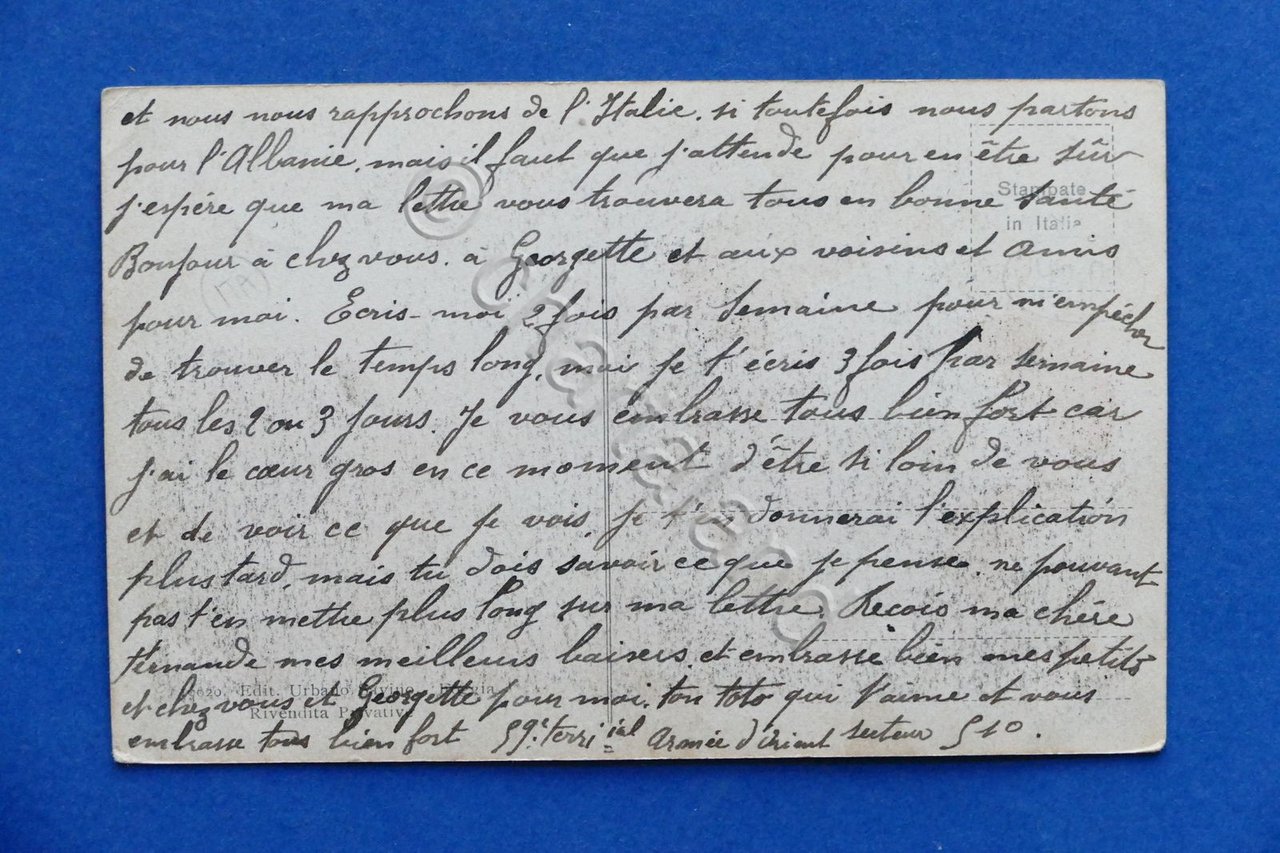 et nous nous rapprochons de l'Italie. si toutefois nous partons
pour l'Albanie. mais il faut que j'attende pour en être sûr
Stampate
j'espère que ma lettre vous trouvera tous en bonne santé
in Italia
Bonjour à chez vous. à Georgette et aux voisins et amis
pour moi. Ecris-moi 2 fois par semaine pour m'empêcher
de trouver le temps long, moi je t'écris 3 fois par semaine
tous les 2 ou 3 jours. Je vous embrasse tous bien fort car
j'ai le cœur gros en ce moment d'être si loin de vous
et de voir ce que je vois je t'en donnerai l'explication
plus tard, mais tu dois savoir ce que je pense. ne pouvant
pas t'en mettre plus long sur ma lettre. Recois ma chère
fernande mes meilleurs baisers. et embrasse bien mes petits
Edit. Urbano
et chez vous et Georgette pour moi. ton toto qui t'aime et vous
Rivendita Privative
embrasse tous bien fort 59e terri ial Armée d'orient secteur 510.
© Chartaland